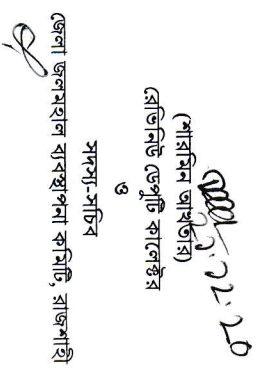 ২৮.১২.২০
(শারমিন আখতার)
রেভিনিউ ডেপুটি কালেক্টর
ও
সদস্য-সচিব
জেলা জলমহাল ব্যবস্থাপনা কমিটি, রাজশাহী